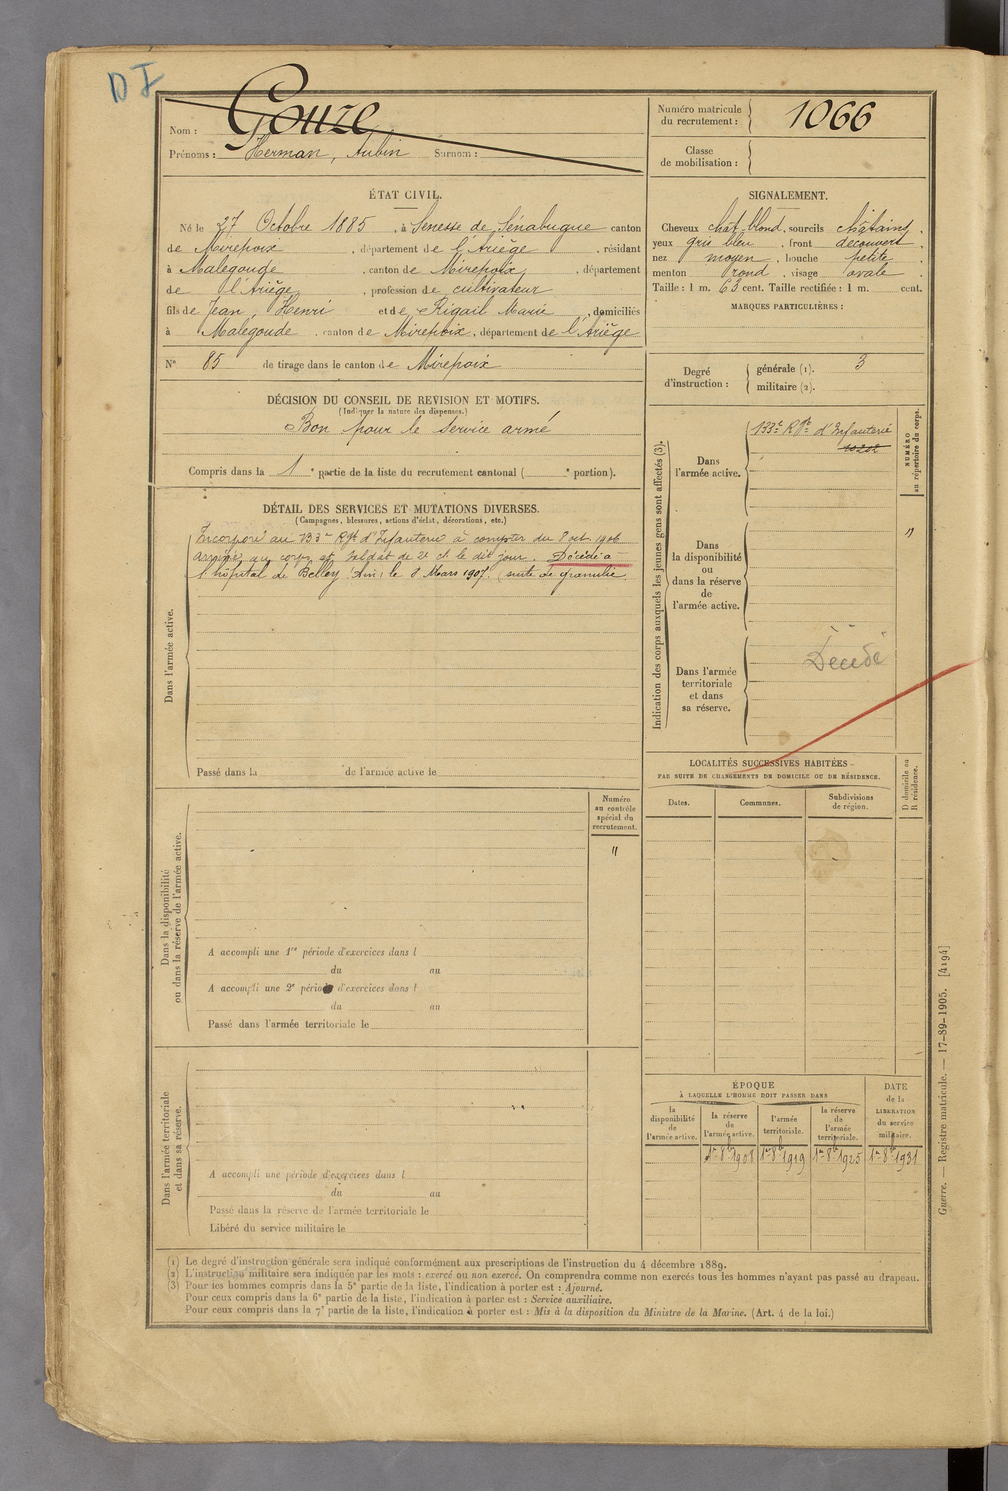 D I
Nom : Gouze
Prénoms : Herman, Aubin Surnom :
Numéro matricule
du recrutement : 1066
Classe
de mobilisation :
ÉTAT CIVIL.
Né le 27 Octobre 1885, à Senesse de Sénabugue canton
de Mirepoix, département de l'Ariège, résidant
à Malegoude, canton de Mirepoix, département
de l'Ariège, profession de cultivateur
fils de Jean, Henri et de Rigail Marie, domiciliés
à Malegoude, canton de Mirepoix, département de l'Ariège
N° 85 de tirage dans le canton de Mirepoix
SIGNALEMENT.
Cheveux chât blond, sourcils châtains,
yeux gris bleu, front découvert,
nez moyen, bouche petite,
menton rond, visage ovale.
Taille : 1 m. 63 cent. Taille rectifiée : 1 m. cent.
MARQUES PARTICULIÈRES :
Degré
d'instruction :
générale (1). 3
militaire (2).
DÉCISION DU CONSEIL DE REVISION ET MOTIFS.
(Indiquer la nature des dispenses.)
Bon pour le service armé
Compris dans la 1e partie de la liste du recrutement cantonal ( e portion).
DÉTAIL DES SERVICES ET MUTATIONS DIVERSES.
(Campagnes, blessures, actions d'éclat, décorations, etc.)
Incorporé au 133e Rgt d'Infanterie à compter du 8 oct 1906
arrivé au corps et soldat de 2e cl. le dit jour. Décédé à
l'hôpital de Belley (Ain) le 8 Mars 1907. (suite de granulie.
Dans l'armée active.
Passé dans la de l'armée active le
Indication des corps auxquels les jeunes gens sont affectés (3).
Dans
l'armée active.
133e Rgt d'Infanterie
NUMÉRO
au répertoire du corps.
Dans
la disponibilité
ou
dans la réserve
de
l'armée active.
"
Dans l'armée
territoriale
et dans
sa réserve.
Décédé
LOCALITÉS SUCCESSIVES HABITÉES
PAR SUITE DE CHANGEMENTS DE DOMICILE OU DE RÉSIDENCE.
Dates.
Communes.
Subdivisions
de région.
D domicile ou
R résidence.
Numéro
au contrôle
spécial du
recrutement.
"
Dans la disponibilité
ou dans la réserve de l'armée active.
A accompli une 1re période d'exercices dans l
du au
A accompli une 2e période d'exercices dans l
du au
Passé dans l'armée territoriale le
Dans l'armée territoriale
et dans sa réserve.
A accompli une période d'exercices dans l
du au
Passé dans la réserve de l'armée territoriale le
Libéré du service militaire le
ÉPOQUE
À LAQUELLE L'HOMME DOIT PASSER DANS
la
disponibilité
de
l'armée active.
la réserve
de
l'armée active.
l'armée
territoriale.
la réserve
de
l'armée
territoriale.
DATE
de la
LIBÉRATION
du service
militaire.
1er 8bre 1908 1er 8bre 1919 1er 8bre 1925 1er 8bre 1931
(1) Le degré d'instruction générale sera indiqué conformément aux prescriptions de l'instruction du 4 décembre 1889.
(2) L'instruction militaire sera indiquée par les mots : exercé ou non exercé. On comprendra comme non exercés tous les hommes n'ayant pas passé au drapeau.
(3) Pour les hommes compris dans la 5e partie de la liste, l'indication à porter est : Ajourné.
Pour ceux compris dans la 6e partie de la liste, l'indication à porter est : Service auxiliaire.
Pour ceux compris dans la 7e partie de la liste, l'indication à porter est : Mis à la disposition du Ministre de la Marine. (Art. 4 de la loi.)
Guerre. — Registre matricule. — 17-89-1905. [4194]